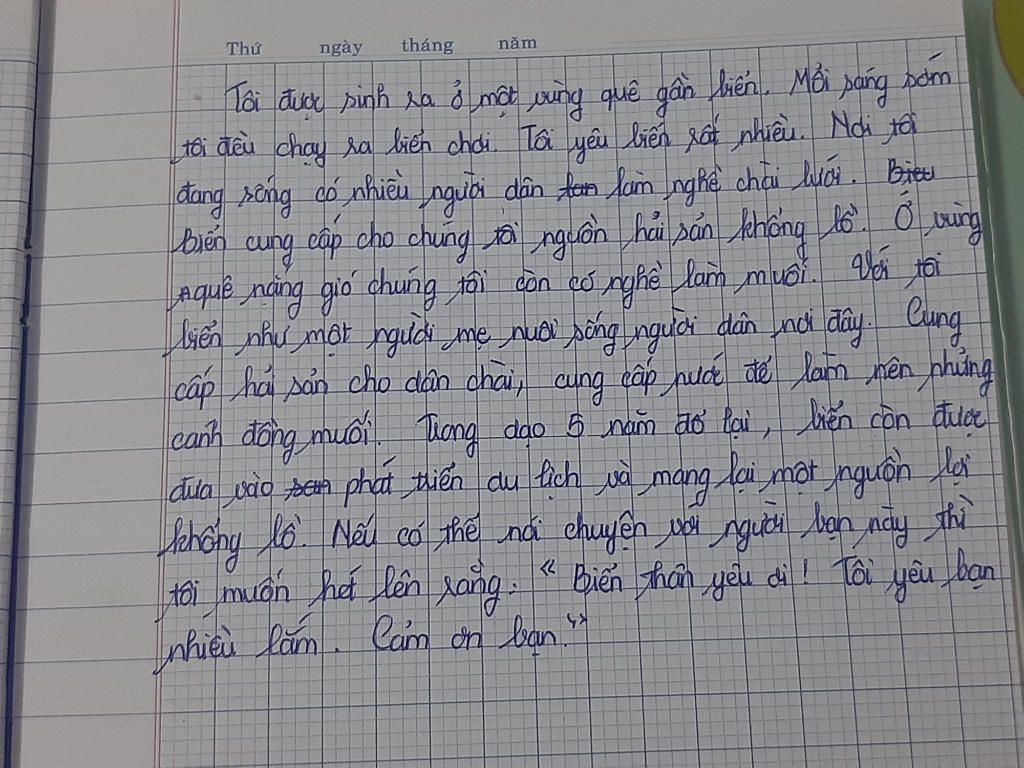 Thứ ngày tháng năm
Tôi được sinh ra ở một vùng quê gần biển. Mỗi sáng sớm
tôi đều chạy ra biển chơi. Tôi yêu biển rất nhiều. Nơi tôi
đang sống có nhiều người dân làm nghề chài lưới.
biển cung cấp cho chúng tôi nguồn hải sản khổng lồ. Ở vùng
quê nắng gió chúng tôi còn có nghề làm muối. Với tôi
biển như một người mẹ nuôi sống người dân nơi đây. Cung
cấp hải sản cho dân chài, cung cấp nước để làm nên những
canh đồng muối. Trong dạo 5 năm đổ lại, biển còn được
đưa vào phát triển du lịch và mang lại một nguồn lợi
khổng lồ. Nếu có thể nói chuyện với người bạn này thì
tôi muốn hét lên rằng: "Biển thân yêu ơi! Tôi yêu bạn
nhiều lắm. Cảm ơn bạn."